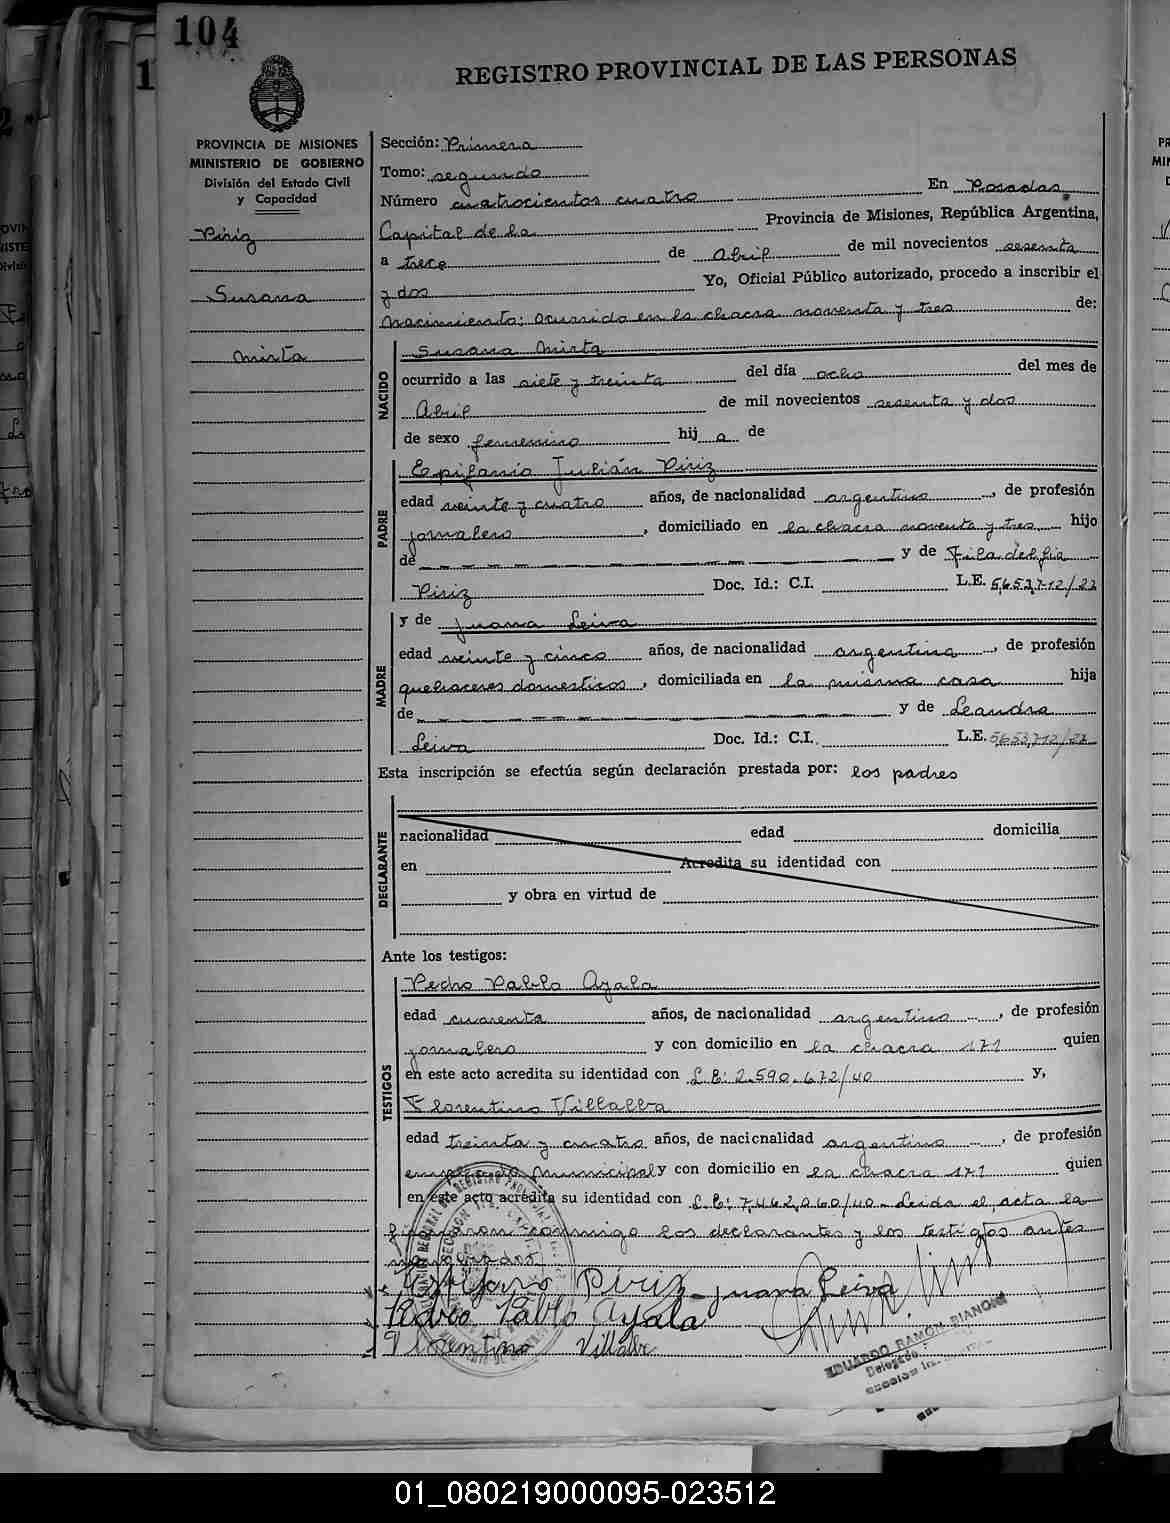 104
REGISTRO PROVINCIAL DE LAS PERSONAS
PROVINCIA DE MISIONES
MINISTERIO DE GOBIERNO
División del Estado Civil
y Capacidad
Piriz
Susana
Mirta
Sección: Primera
Tomo: segundo
Número cuatrocientos cuatro En Posadas
Capital de la Provincia de Misiones, República Argentina,
a trece de Abril de mil novecientos sesenta
y dos Yo, Oficial Público autorizado, procedo a inscribir el
nacimiento: ocurrido en la chacra noventa y tres de:
NACIDO
Susana Mirta
ocurrido a las siete y treinta del día ocho del mes de
Abril de mil novecientos sesenta y dos
de sexo femenino hij a de
PADRE
Epifanio Julián Piriz
edad veinte y cuatro años, de nacionalidad argentino, de profesión
jornalero, domiciliado en la chacra noventa y tres hijo
de y de Filadelfia
Piriz Doc. Id.: C.I. L.E. 5.653.712/27
MADRE
y de Juana Leiva
edad veinte y cinco años, de nacionalidad argentina, de profesión
quehaceres domesticos, domiciliada en la misma casa hija
de y de Leandra
Leiva Doc. Id.: C.I. L.E. 5.653.712/27
Esta inscripción se efectúa según declaración prestada por: los padres
DECLARANTE
nacionalidad edad domicilia
en Acredita su identidad con
y obra en virtud de
Ante los testigos:
TESTIGOS
Pedro Pablo Ayala
edad cuarenta años, de nacionalidad argentino, de profesión
jornalero y con domicilio en la chacra 171 quien
en este acto acredita su identidad con L.E: 2.590.672/40 y,
Florentino Villalba
edad treinta y cuatro años, de nacicnalidad argentino, de profesión
empleado Municipal y con domicilio en la chacra 171 quien
en este acto acredita su identidad con L.E: 7.462.060/40 - Leida el acta la
firmaron conmigo los declarantes y los testigos antes
nombrados
Epifanio Piriz - Juana Leiva
Pedro Pablo Ayala
Florentino Villalba
EDUARDO RAMON BIANCHI
Delegado
01_080219000095-023512